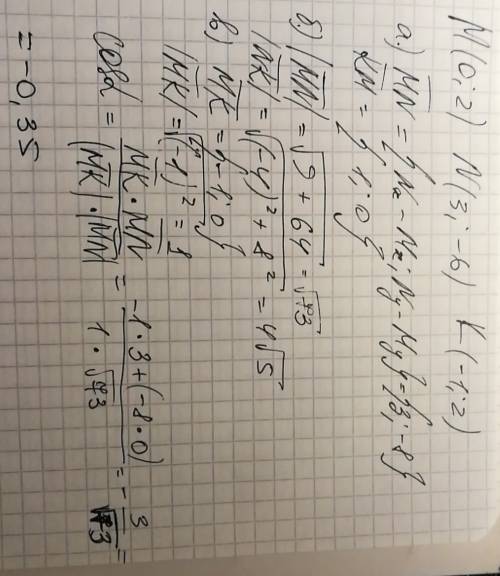 M(0; 2) N(3; -6) K(-1; 2)
а.) MN = {Nx - Mx; Ny - My} = {3; -8}
KM = {1; 0}
б.) |MN| = √9 + 64 = √73
|NK| = √(-4)² + 8² = 4√5
в) MK = {-1; 0}
|MK| = √(-1)² = 1
Cosα = MK · MN / |MK| · |MN| = -1·3+(-8·0) / 1·√73 = - 3 / √73 =
= -0,35